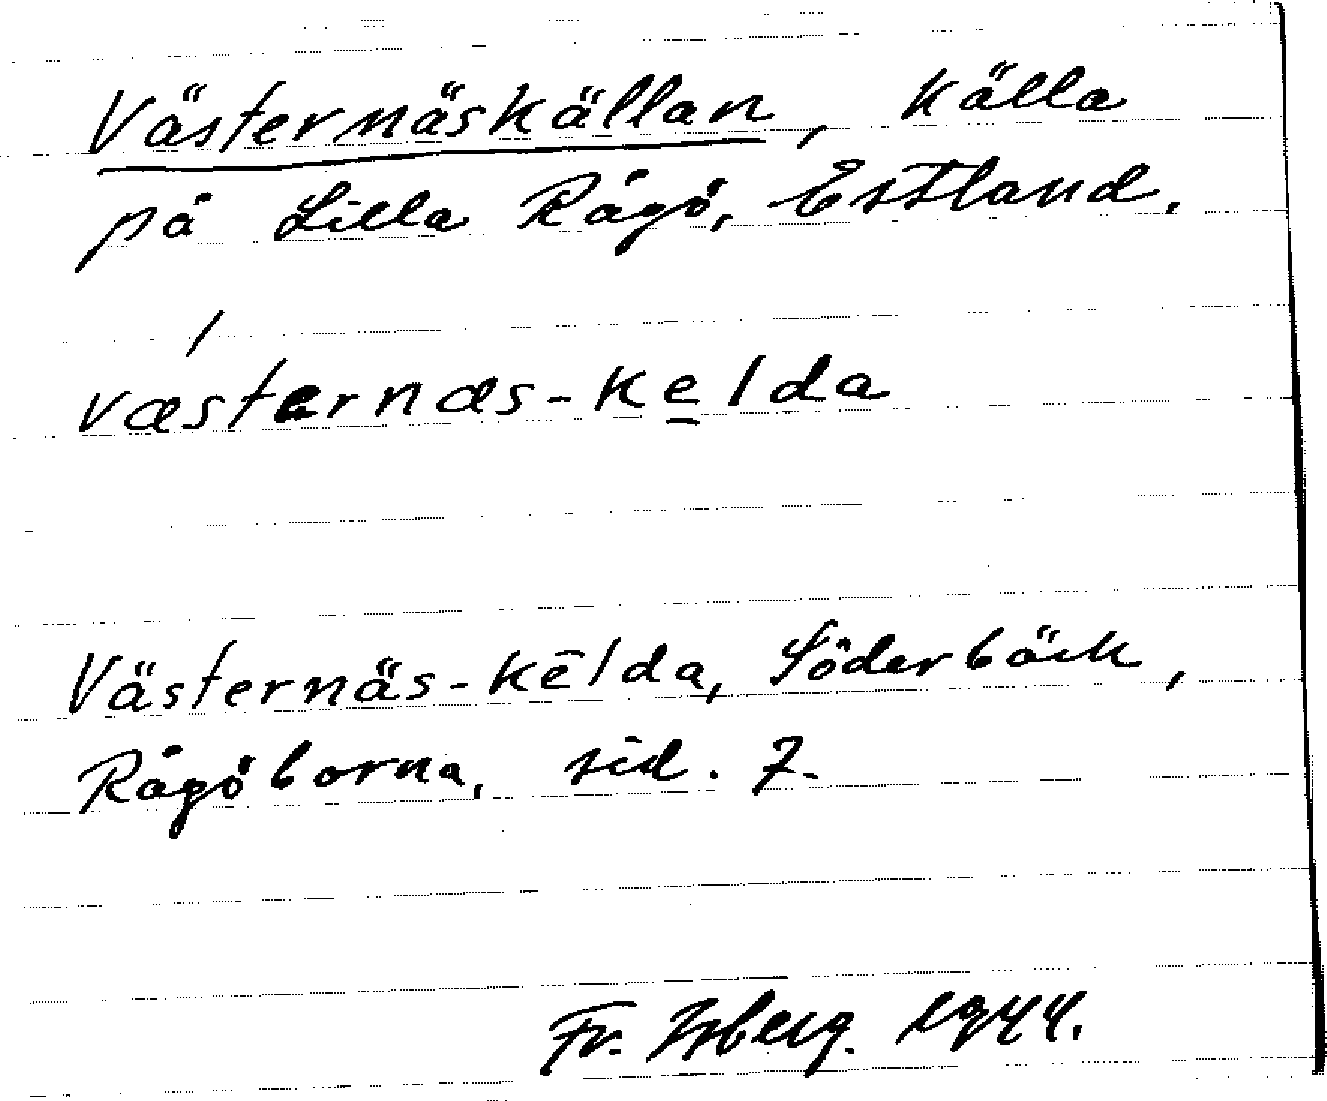 Västernäskällan, källa
på Lilla Rågö, Estland.
væsternæs-ke̲lda
Västernäs-kēlda, Söderbäck,
Rågöborna, sid. 7.
Fr. 1944.